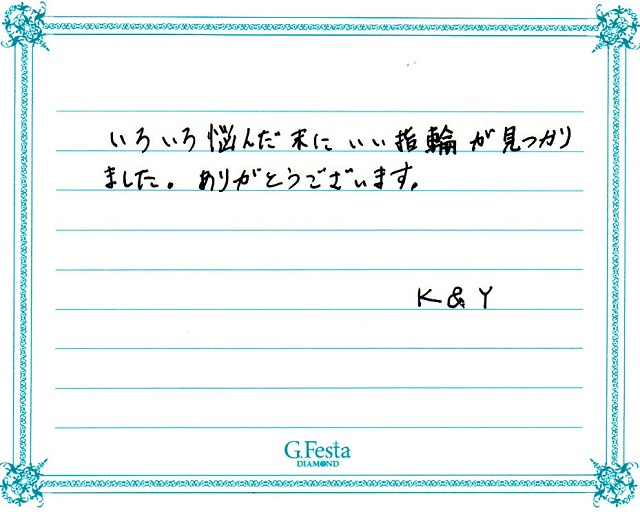 いろいろ悩んだ末にいい指輪が見つかり
ました。ありがとうございます。
K & Y
G.Festa
DIAMOND